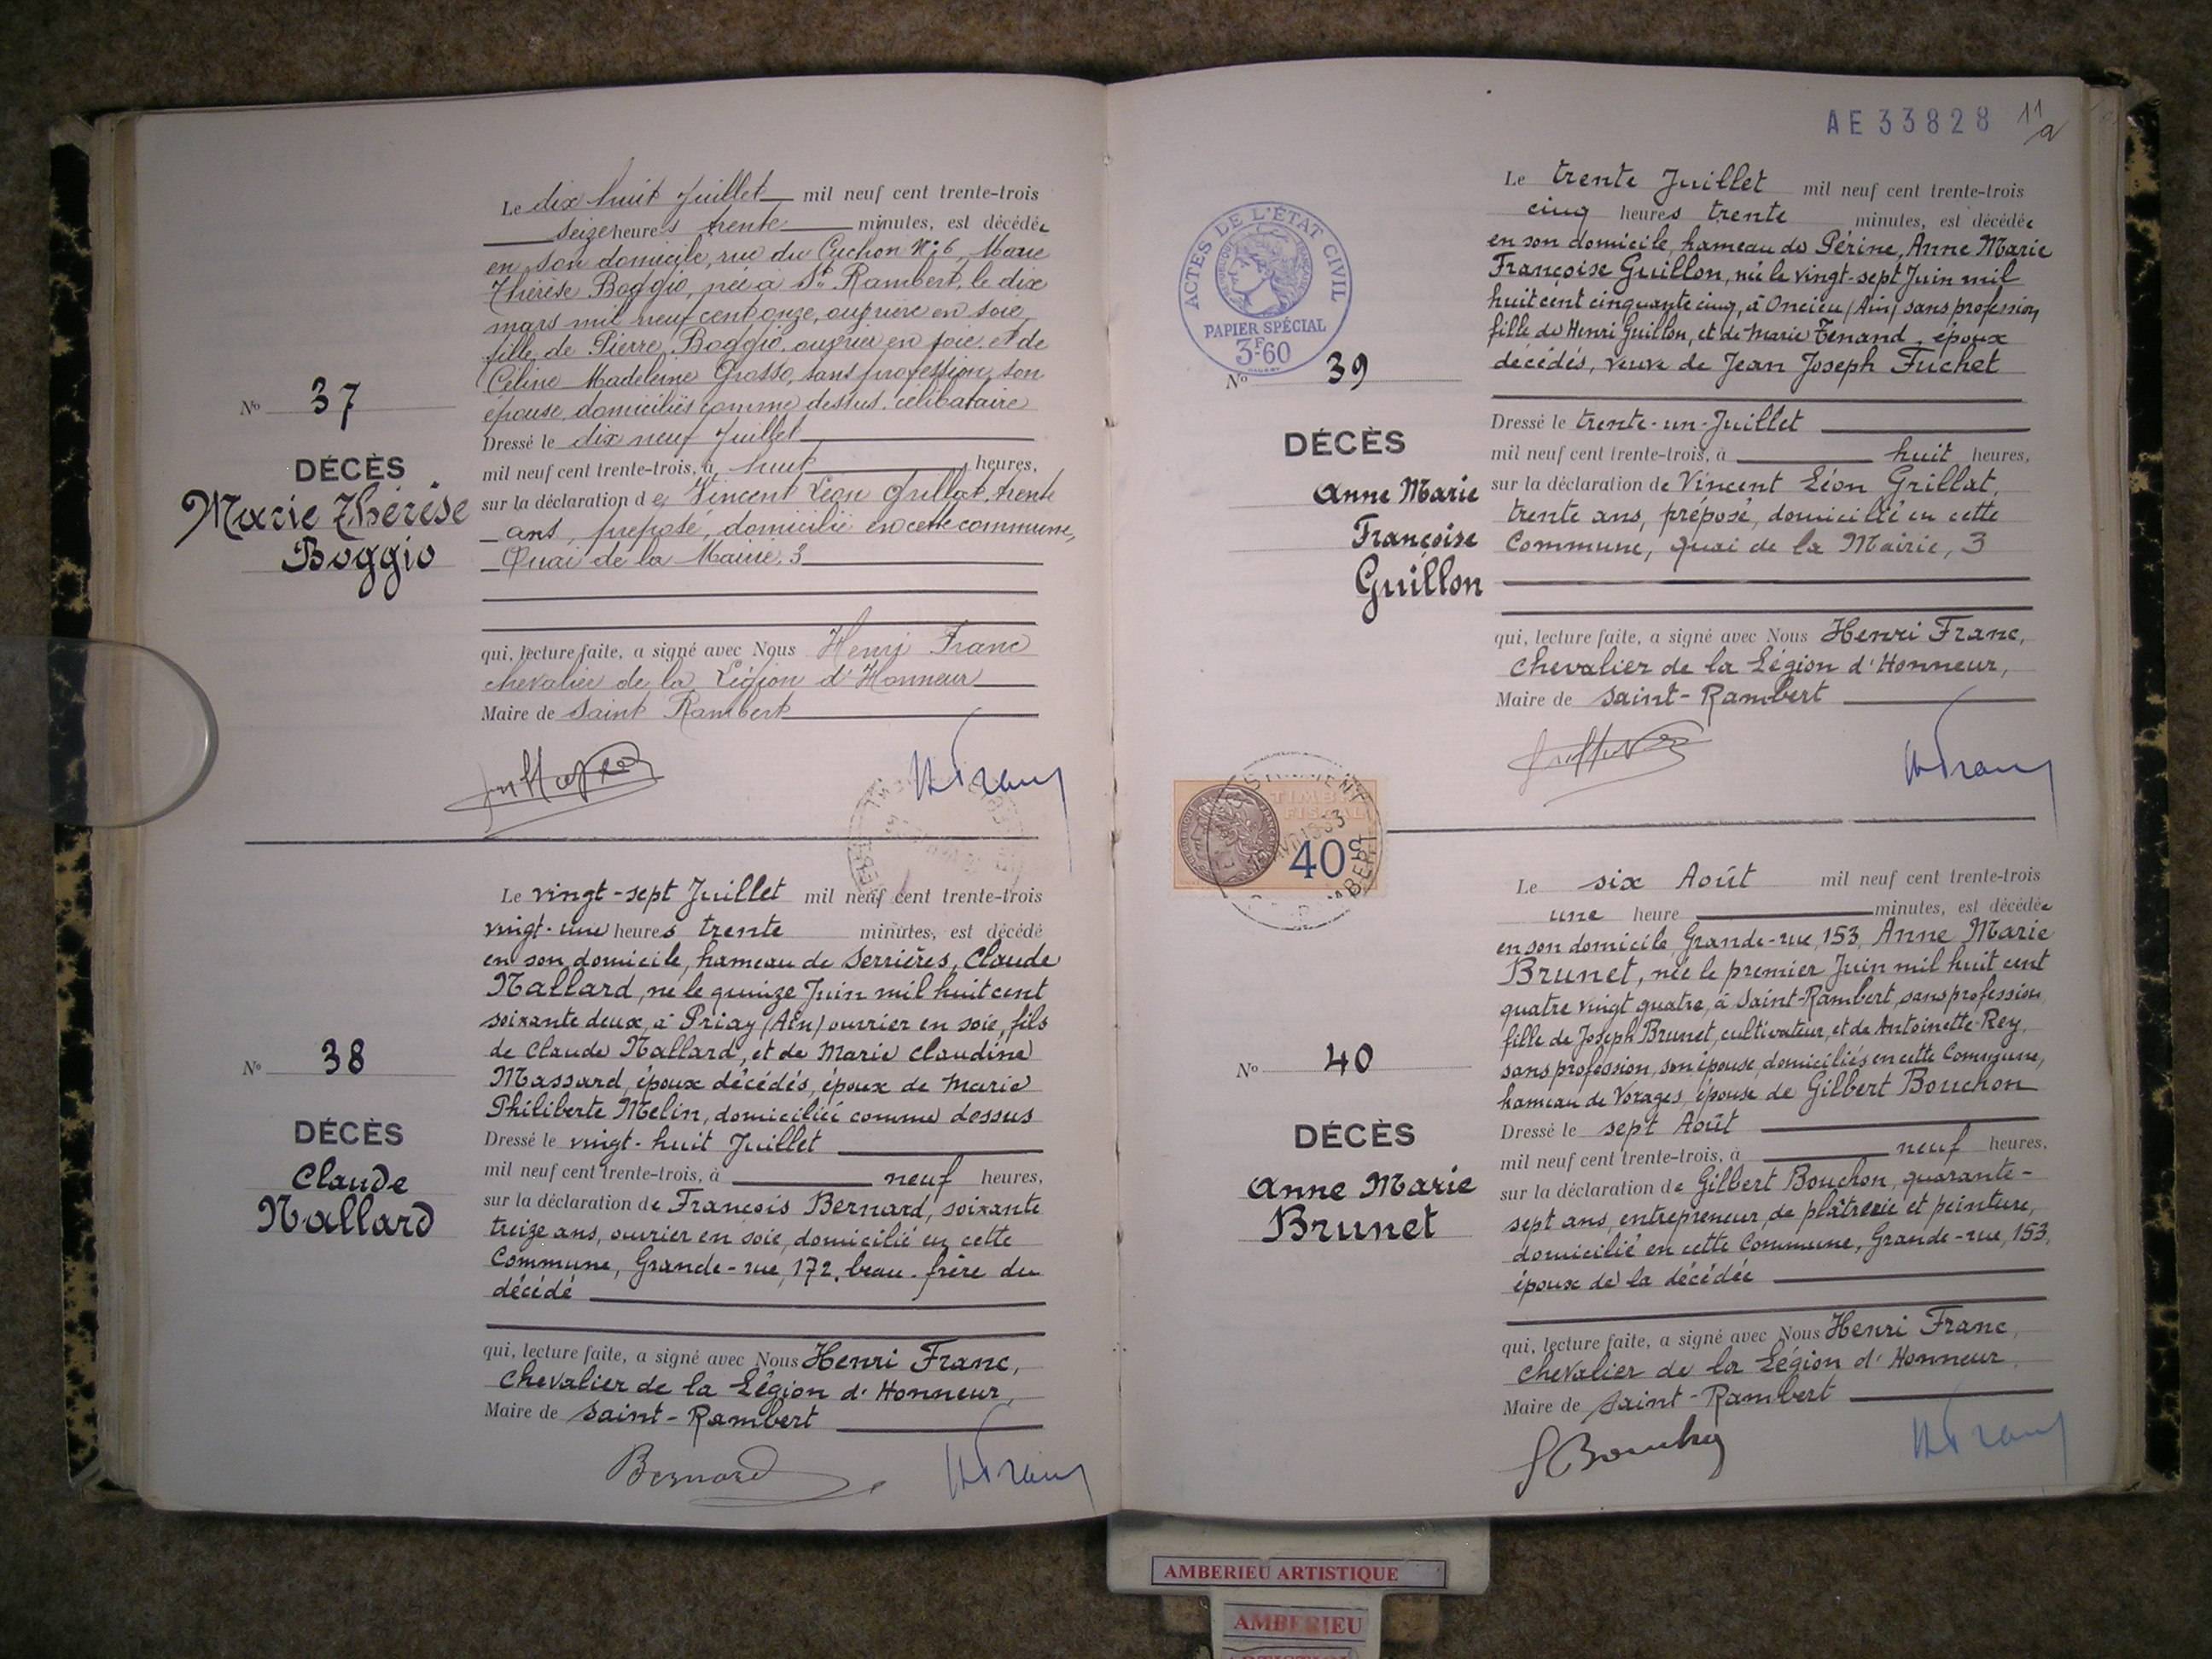 Le dix huit Juillet mil neuf cent trente-trois
seize heures trente minutes, est décédée
en son domicile, rue du Cuchon No 6, Marie
Thérèse Boggio, née à St Rambert, le dix
mars mil neuf cent onze, ouvrière en soie,
fille de Pierre Boggio, ouvrier en soie, et de
Céline Madeleine Grosso, sans profession, son
épouse, domiciliés comme dessus. célibataire
No 37
Dressé le dix neuf Juillet
mil neuf cent trente-trois, à huit heures,
DÉCÈS
Marie Thérèse
Boggio
sur la déclaration de Vincent Léon Grillat, trente
ans, préposé, domicilié en cette commune,
Quai de la Mairie, 3
qui, lecture faite, a signé avec Nous Henri Franc
chevalier de la Légion d'Honneur
Maire de Saint Rambert
Le vingt-sept Juillet mil neuf cent trente-trois
vingt-une heures trente minutes, est décédé
en son domicile, hameau de Serrières, Claude
Nallard, né le quinze Juin mil huit cent
soixante deux, à Priay (Ain) ouvrier en soie, fils
de Claude Nallard, et de Marie Claudine
Massard, époux décédés, époux de Marie
Philiberte Melin, domiciliée comme dessus
No 38
DÉCÈS
Claude
Nallard
Dressé le vingt-huit Juillet
mil neuf cent trente-trois, à neuf heures,
sur la déclaration de François Bernard, soixante
treize ans, ouvrier en soie, domicilié en cette
Commune, Grande-rue, 172, beau-frère du
décédé
qui, lecture faite, a signé avec Nous Henri Franc,
Chevalier de la Légion d'Honneur,
Maire de Saint-Rambert
Bernard
AE 33828
11
ACTES DE L'ÉTAT CIVIL
PAPIER SPÉCIAL
3F60
Le trente Juillet mil neuf cent trente-trois
cinq heures trente minutes, est décédée
en son domicile, hameau de Périne, Anne Marie
Françoise Guillon, née le vingt-sept Juin mil
huit cent cinquante cinq, à Oncieu (Ain) sans profession,
fille de Henri Guillon, et de Marie Tenand, époux
décédés, veuve de Jean Joseph Fuchet
No 39
DÉCÈS
Anne Marie
Françoise
Guillon
Dressé le trente-un-Juillet
mil neuf cent trente-trois, à huit heures,
sur la déclaration de Vincent Léon Grillat,
trente ans, préposé, domicilié en cette
Commune, quai de la Mairie, 3
qui, lecture faite, a signé avec Nous Henri Franc,
Chevalier de la Légion d'Honneur,
Maire de Saint-Rambert
TIMBRE
FISCAL
40c
Le six Août mil neuf cent trente-trois
une heure minutes, est décédée
en son domicile Grande-rue, 153, Anne Marie
Brunet, née le premier Juin mil huit cent
quatre vingt quatre, à Saint-Rambert, sans profession
fille de Joseph Brunet, cultivateur, et de Antoinette Rey,
sans profession, son épouse, domiciliés en cette Commune,
hameau de Vorages, épouse de Gilbert Bouchon
No 40
DÉCÈS
Anne Marie
Brunet
Dressé le sept Août
mil neuf cent trente-trois, à neuf heures,
sur la déclaration de Gilbert Bouchon, quarante-
sept ans, entrepreneur de plâtrerie et peinture,
domicilié en cette Commune, Grande-rue, 153,
époux de la décédée
qui, lecture faite, a signé avec Nous Henri Franc,
Chevalier de la Légion d'Honneur,
Maire de Saint-Rambert
AMBERIEU ARTISTIQUE
AMBERIEU
ARTISTIQUE